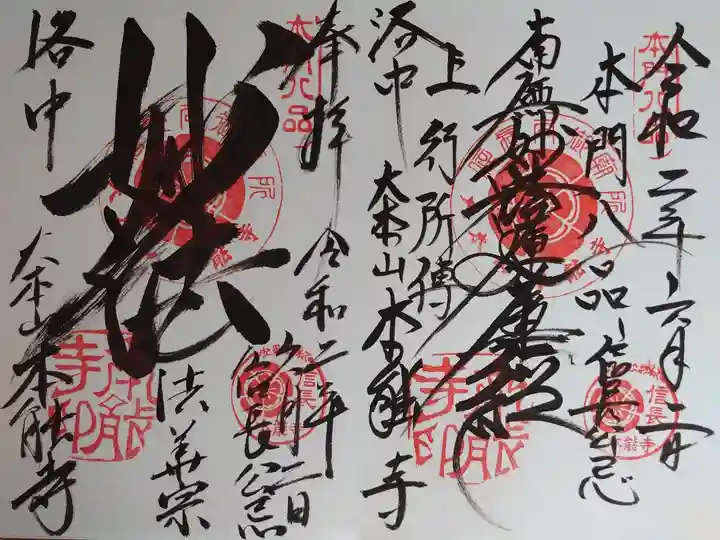 令和二年六月二日
本門八品
信長公忌
南無妙法蓮華経
上行所傳
洛中
大本山本能寺
奉拝
令和二年六月二日
信長公忌
妙法
法華宗
洛中
大本山本能寺
本門八品
信長
本能寺
本能寺印
信長
本能寺印